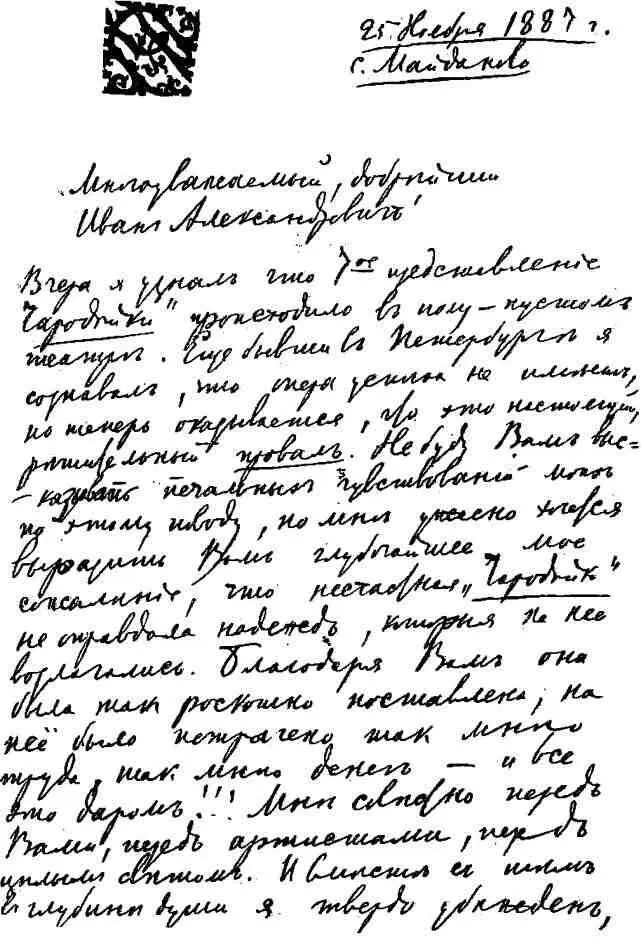 25 Ноября 1887 г.
с. Майданово
Многоуважаемый, добрейший
Иванъ Александровичъ!
Вчера я узналъ что 7ое представленіе
„Чародѣйки" происходило въ полу-пустомъ
театрѣ. Еще бывши въ Петербургѣ я
сознавалъ, что опера успѣха не имѣетъ,
но теперь оказывается, что это настоящій,
рѣшительный провалъ. Не буду Вамъ выс-
-казывать печальныхъ чувствованій моихъ
по этому поводу, но мнѣ ужасно хочется
выразить Вамъ глубочайшее мое
сожалѣніе, что несчастная „Чародѣйка"
не оправдала надеждъ, которыя на нее
возлагались. Благодаря Вамъ она
была такъ роскошно поставлена, на
неё было потрачено такъ много
труда, такъ много денегъ — и все
это даромъ!!! Мнѣ совѣстно передъ
Вами, передъ артистами, передъ
цѣлымъ свѣтомъ. И вмѣстѣ съ тѣмъ
въ глубинѣ души я твердо убѣжденъ,